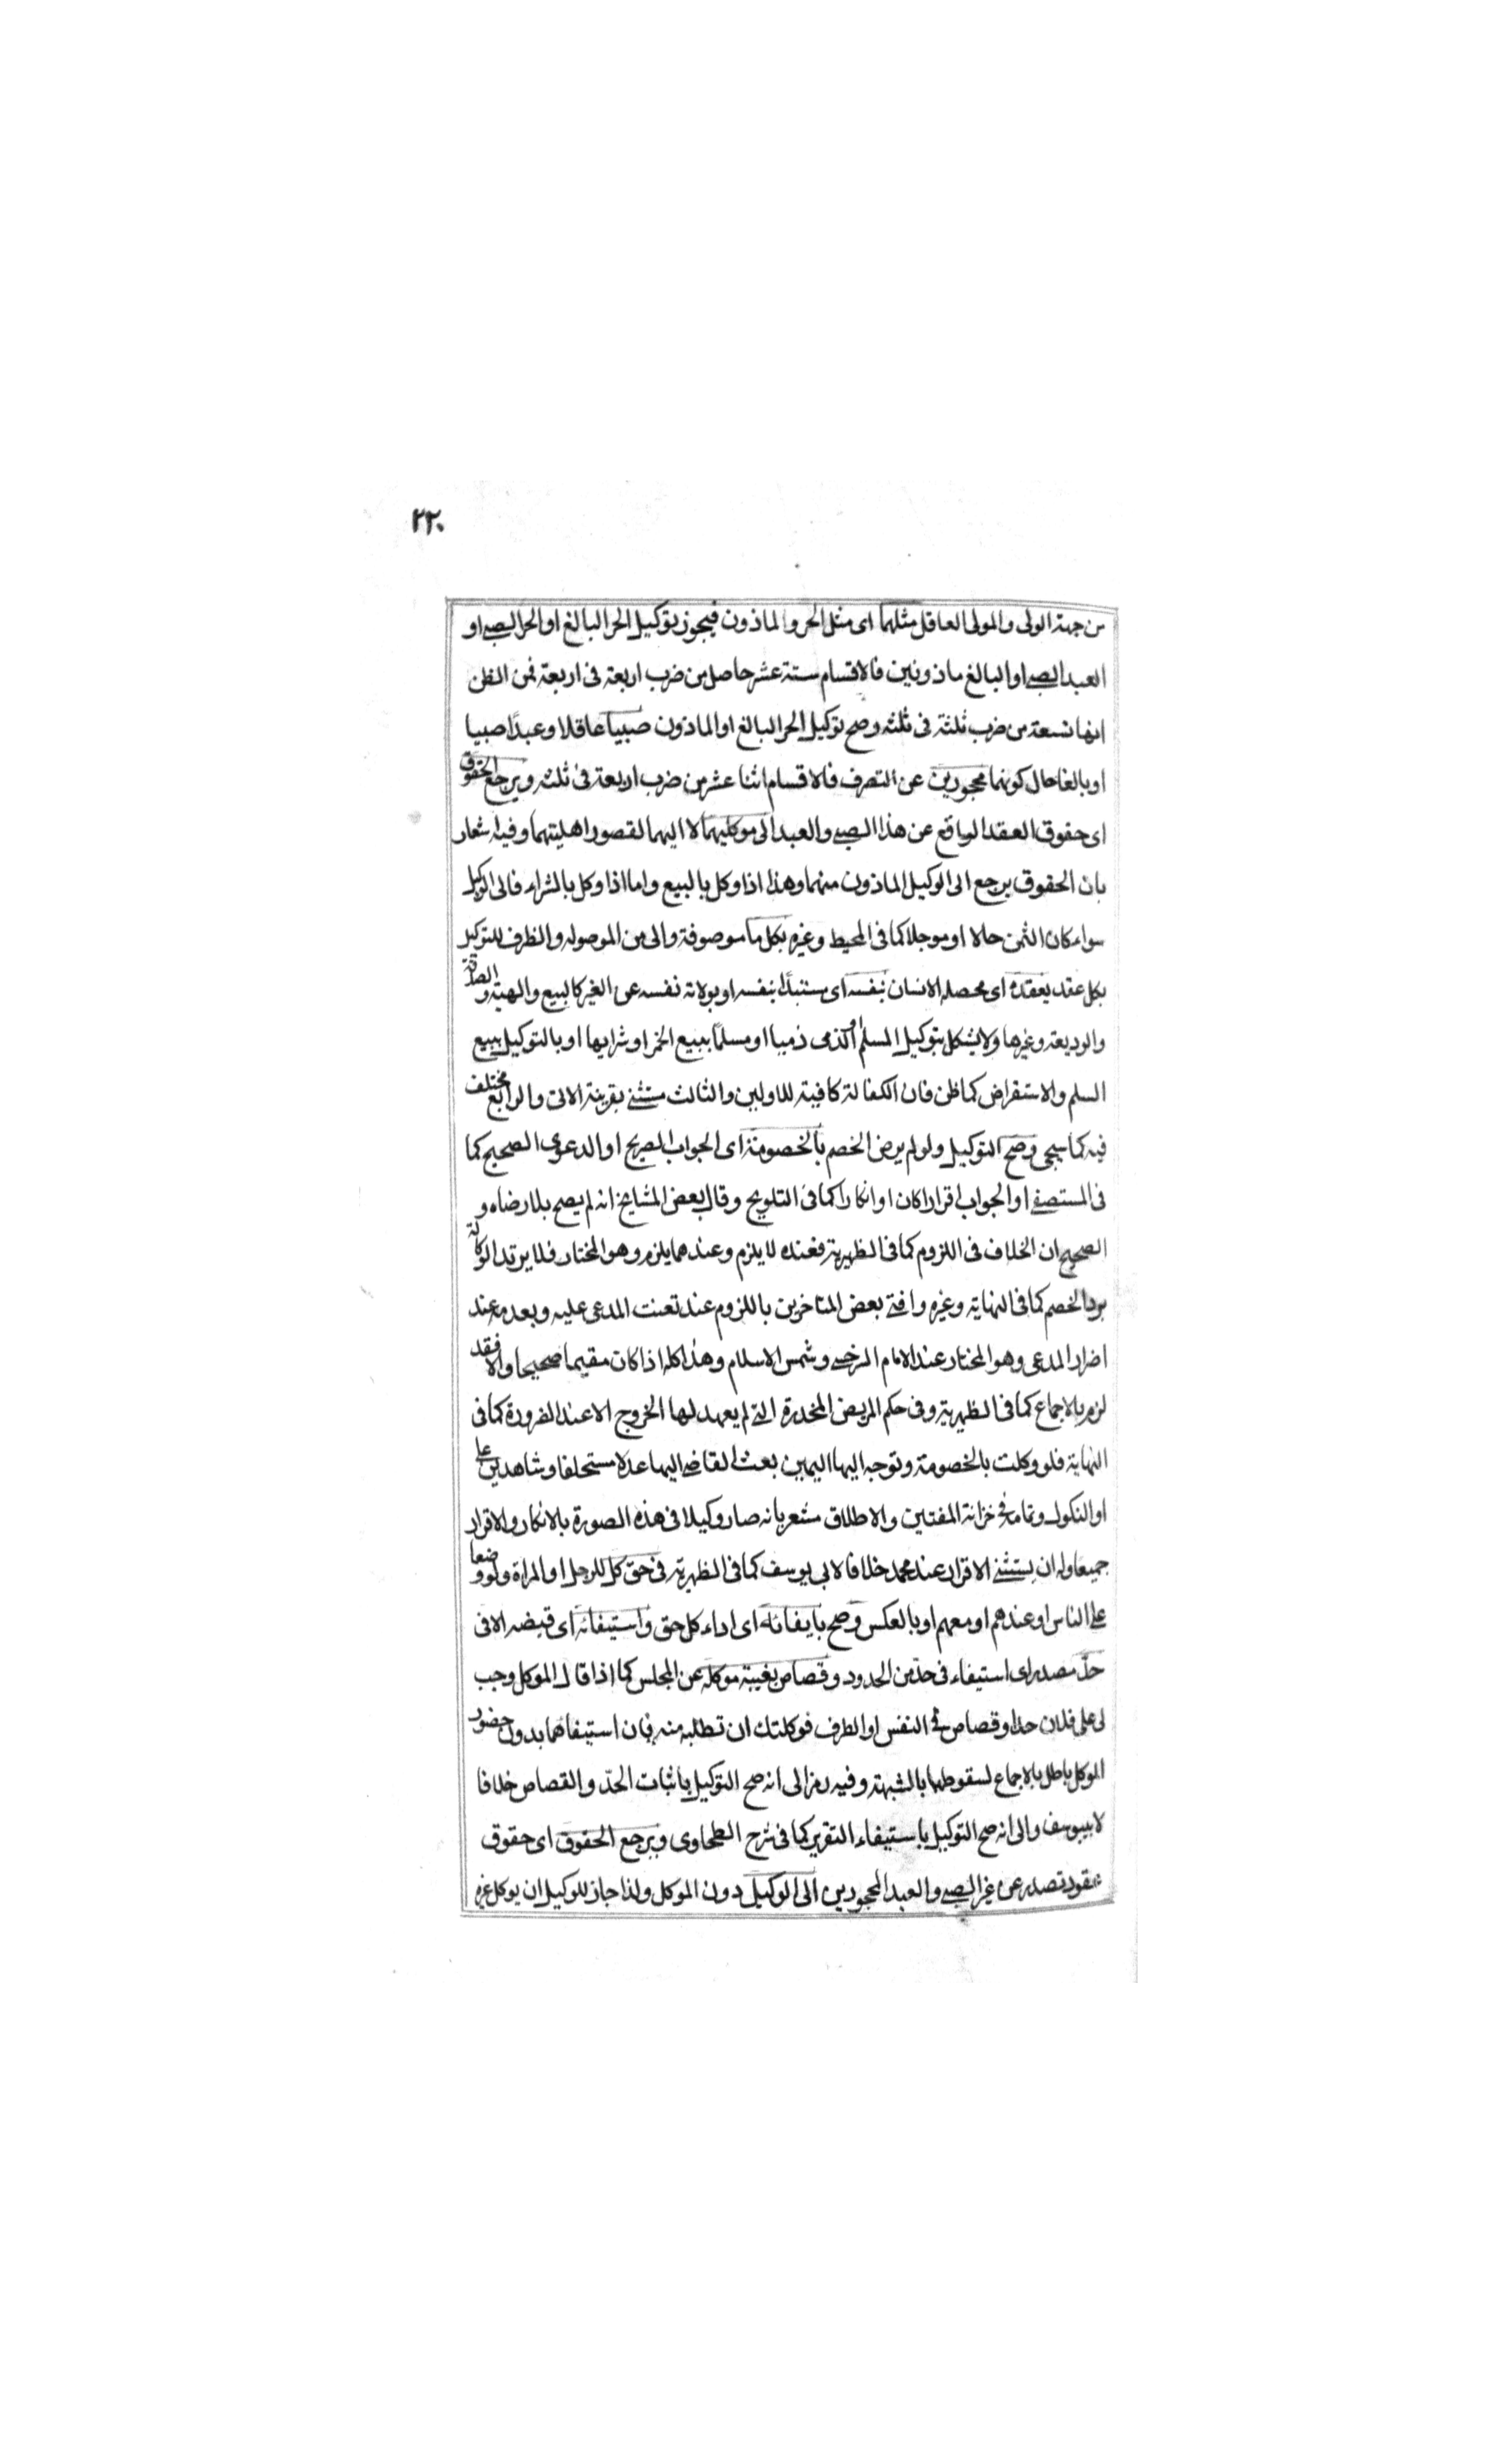 ٢٢٠
من جهة الولى والمولى العاقل مثلهما اى مثل الحر والماذون فيجوز توكيل الحر البالغ او الحر الصبى او
العبد الصبى او البالغ ماذونين فالاقسام ستة عشر حاصل من ضرب اربعة فى اربعة فمن الظن
انها تسعة من ضرب ثلثة فى ثلثه وصح توكيل الحر البالغ او الماذون صبيا عاقلا وعبدا صبيا
او بالغا حال كونهما محجورين عن التصرف فالاقسام اثنا عشر من ضرب اربعة فى ثلثه ويرجع الحقوق
اى حقوق العقد الواقع عن هذا الصبى والعبد الى موكليهما لا اليهما لقصور اهليتهما وفيه اشعار
بان الحقوق يرجع الى الوكيل الماذون منهما وهذا اذا وكل بالبيع واما اذا وكل بالشراء فالى الوكيل
سواء كان الثمن حالا او موجلا كما فى المحيط وغيره بكل ما موصوفة والى من الموصوله والظرف للتوكيل
بكل عقد يعقده اى محصله الانسان بنفسه اى مستبدا بنفسه او بولاته نفسه عن الغير كالبيع والهبة والصدقة
والوديعة وغيرها ولا يشكل بتوكيل المسلم او الذمى ذميا او مسلما ببيع الخمر او شرايها او بالتوكيل ببيع
السلم والاستقراض كما ظن فان الكفالة كافية للاولين والثالث مستثنى بقرينة الاتى والرابع مختلف
فيه كما سيجى وصح التوكيل ولو لم يرض الخصم بالخصومة اى الجواب الصريح او الدعوى الصحيح كما
فى المستصفى او الجواب اقرارا كان او انكارا كما فى التلويح وقال بعض المشايخ انه لم يصح بلا رضاه و
الصحيح ان الخلاف فى اللزوم كما فى الظهيرية فعنده لا يلزم وعندهما يلزم وهو المختار فلا يرتد الوكالة
برد الخصم كما فى النهاية وغيره وافتى بعض المتاخرين باللزوم عند تعنت المدعى عليه وبعدمه عند
اضرار المدعى وهو المختار عند الامام السرخسى وشمس الاسلام وهذا كله اذا كان مقيما صحيحا والا فقد
لزم بالاجماع كما فى الظهيرية وفى حكم المريض المخدرة التى لم يعهد لها الخروج الا عند الضرورة كما فى
النهاية فلو وكلت بالخصومة وتوجه اليها اليمين بعث القاضى اليها عدلا مستحلفا وشاهدين على
او النكول وتمامه فى خزانة المفتين والاطلاق مشعر بانه صار وكيلا فى هذه الصورة بالانكار والاقرار
جميعا وله ان يستثنى الاقرار عند محمد خلافا لابى يوسف كما فى الظهيرية فى حق كل للرجل او المراة ولو وضعا
على الناس او عندهم او معهم او بالعكس وصح بايفائه اى اداء كل حق واستيفائه اى قبضه الا فى
حد مصدر اى استيفاء فى حد من الحدود وقصاص بغيبة موكله عن المجلس كما اذا قال الموكل وجب
لى على فلان حد او قصاص فى النفس او الطرف فوكلتك ان تطلبه منه فان استيفاهما بدون حضور
الموكل باطل بالاجماع لسقوطهما بالشبهة وفيه رمز الى انه صح التوكيل باثبات الحد والقصاص خلافا
لابيوسف والى انه صح التوكيل باستيفاء التقرير كما فى شرح الطحاوى ويرجع الحقوق اى حقوق
عقود تصدر عن غير الصبى والعبد المحجورين الى الوكيل دون الموكل ولذا جاز للوكيل ان يوكل غيره